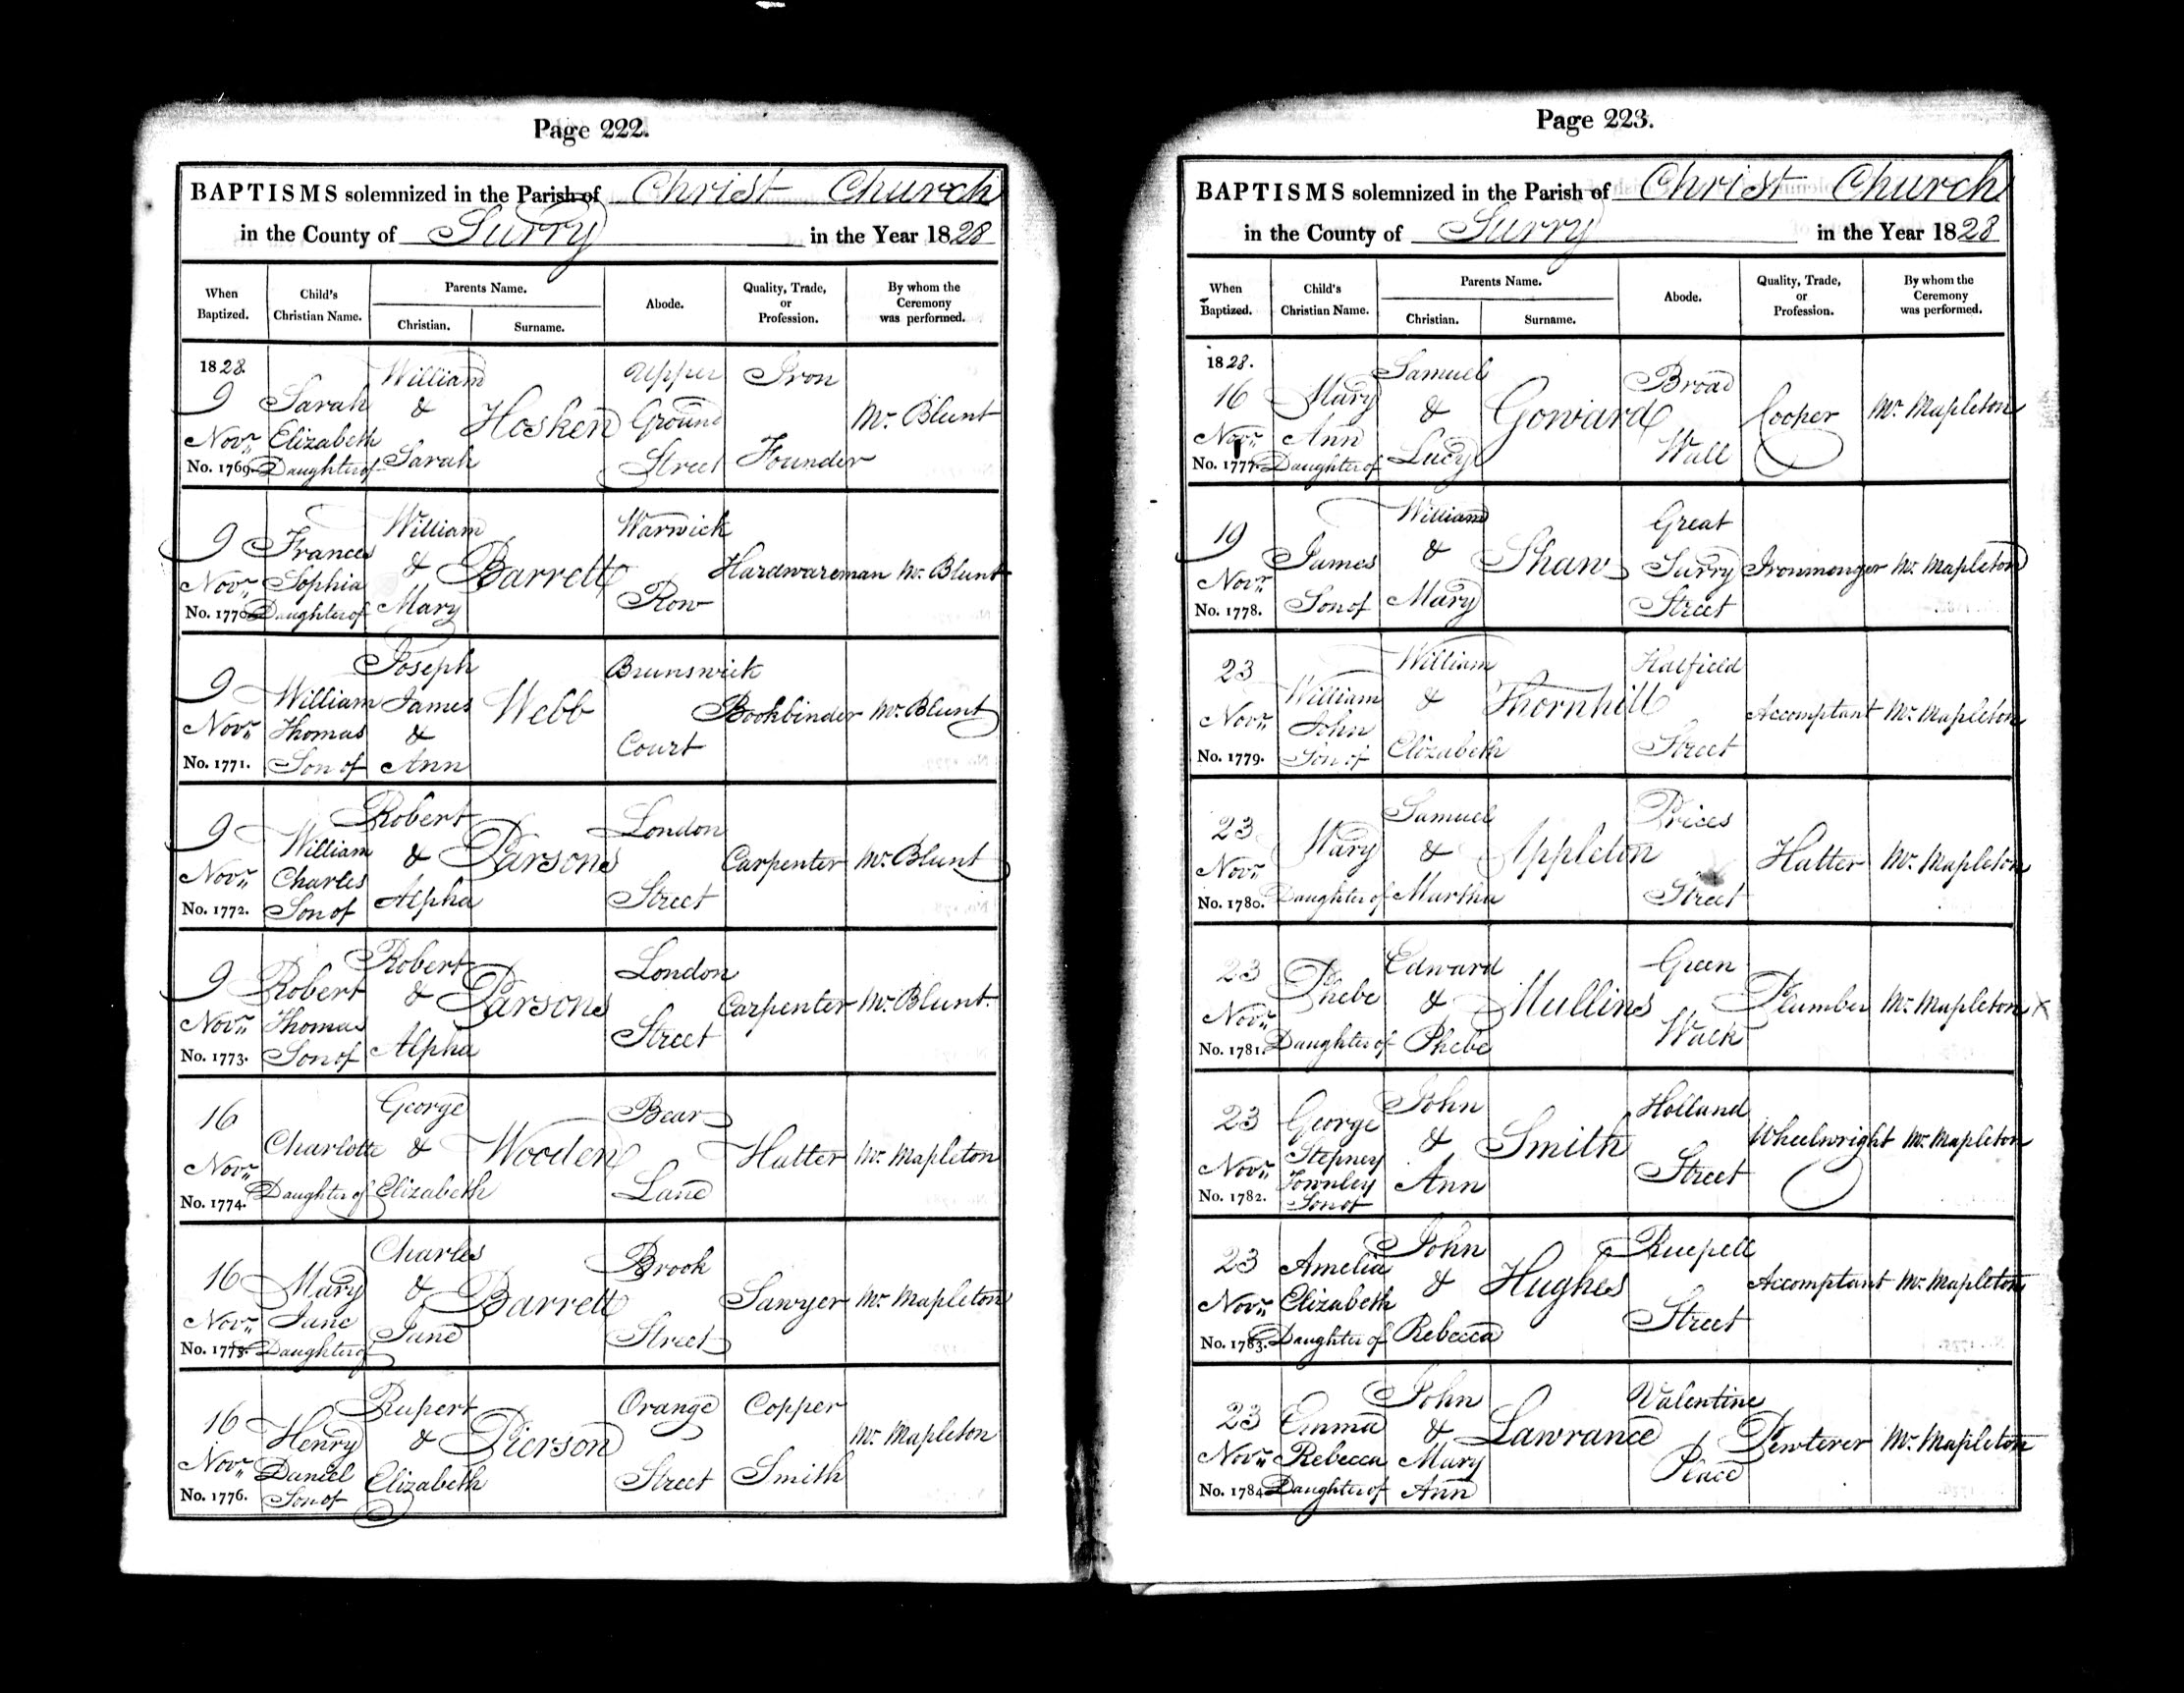 Page 222.
BAPTISMS solemnized in the Parish of Christ Church
in the County of Surry in the Year 1828
When Baptized. Child's Christian Name. Parents Name. Christian. Surname. Abode. Quality, Trade, or Profession. By whom the Ceremony was performed.
1828. 9 Novr. No. 1769. Sarah Elizabeth Daughter of William & Sarah Hosken Upper Ground Street Iron Founder Mr. Blunt
9 Novr. No. 1770 Frances Sophia Daughter of William & Mary Barrett Warwick Row Hardwareman Mr. Blunt
9 Novr. No. 1771. William Thomas Son of Joseph James & Ann Webb Brunswick Court Bookbinder Mr. Blunt
9 Novr. No. 1772. William Charles Son of Robert & Alpha Parsons London Street Carpenter Mr. Blunt
9 Novr. No. 1773. Robert Thomas Son of Robert & Alpha Parsons London Street Carpenter Mr. Blunt.
16 Novr. No. 1774. Charlotte Daughter of George & Elizabeth Wooden Bear Lane Hatter Mr. Mapleton
16 Novr. No. 1775. Mary Jane Daughter of Charles & Jane Barrett Brook Street Sawyer Mr. Mapleton
16 Novr. No. 1776. Henry Daniel Son of Rupert & Elizabeth Pierson Orange Street Copper Smith Mr. Mapleton
Page 223.
BAPTISMS solemnized in the Parish of Christ Church
in the County of Surry in the Year 1828
When Baptized. Child's Christian Name. Parents Name. Christian. Surname. Abode. Quality, Trade, or Profession. By whom the Ceremony was performed.
1828. 16 Novr. No. 1777. Mary Ann Daughter of Samuel & Lucy Goward Broad Wall Cooper Mr. Mapleton
19 Novr. No. 1778. James Son of William & Mary Shaw Great Surry Street Ironmonger Mr. Mapleton
23 Novr. No. 1779. William John Son of William & Elizabeth Thornhill Hatfield Street Accomptant Mr. Mapleton
23 Novr. No. 1780. Mary Daughter of Samuel & Martha Appleton Prices Street Hatter Mr. Mapleton
23 Novr. No. 1781. Phebe Daughter of Edward & Phebe Mullins Green Walk Plumber Mr. Mapleton X
23 Novr. No. 1782. George Stepney Townley Son of John & Ann Smith Holland Street Wheelwright Mr. Mapleton
23 Novr. No. 1783. Amelia Elizabeth Daughter of John & Rebecca Hughes Street Accomptant Mr. Mapleton
23 Novr. No. 1784 Emma Rebecca Daughter of John & Mary Ann Lawrance Valentine Place Pewterer Mr. Mapleton